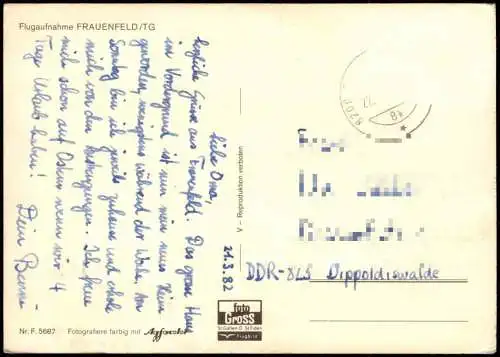 Flugaufnahme FRAUENFELD/TG
21.3.82
Liebe Oma,
herzliche Grüsse aus Frauenfeld. Das grosse Haus
im Vordergrund ist nun mein neues Heim
geworden, wenigstens während der Woche. Am
Sonntag bin ich jeweils zuhause und erhole
mich von den Anstrengungen. Ich freue
mich schon auf Ostern wenn wir 4
Tage Urlaub haben!
Dein
A - Reproduktion verboten
DDR-825 Dippoldiswalde
foto
GROSS
St.Gallen O. St.Fiden
Flugbild
Nr. F. 5687 Fotografiere farbig mit Agfacolor